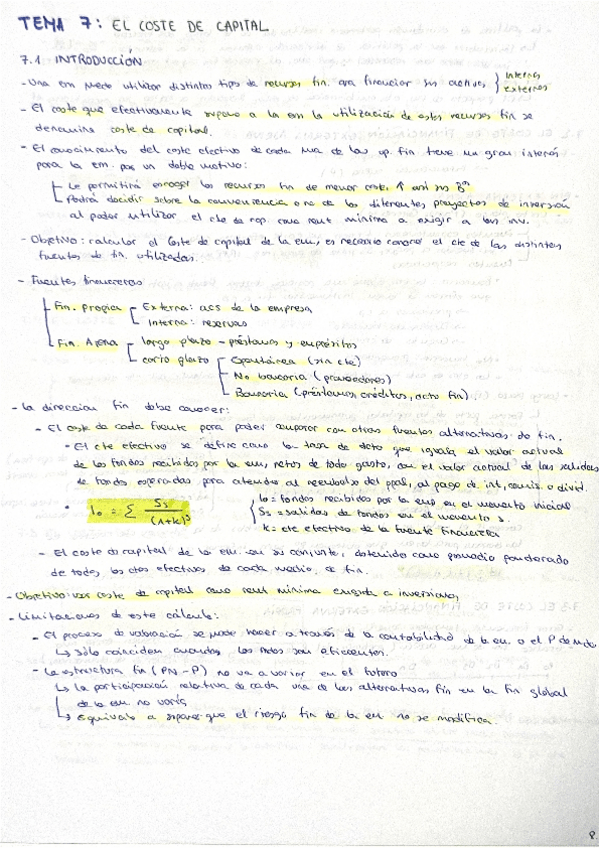 TEMA 7: EL COSTE DE CAPITAL
7.1 INTRODUCCIÓN
- Una em puede utilizar distintos tipos de recursos fin. para financiar sus activos { internos
externos
- El coste que efectivamente supone a la em la utilización de estos recursos fin se
denomina coste de capital.
- El conocimiento del coste efectivo de cada una de las op. fin tiene un gran interés
para la em. por un doble motivo:
Le permitirá escoger los recursos fin de menor coste, ↑ así su Bº
Podrá decidir sobre la conveniencia o no de los diferentes proyectos de inversión
al poder utilizar el cte de cap. como rent mínima a exigir a las inv.
- Objetivo: calcular el coste de capital de la em, es necesario conocer el cte de las distintas
fuentes de fin. utilizadas.
- Fuentes financieras
Fin. Propia Externa: acs de la empresa
Interna: reservas
Fin. Ajena largo plazo - préstamos y empréstitos
corto plazo Espontánea (sin cte)
No bancaria (proveedores)
Bancaria (préstamos, créditos, dcto fin)
- La dirección fin debe conocer:
- El coste de cada fuente para poder comparar con otras fuentes alternativas de fin.
• El cte efectivo se define como la tasa de dcto que iguala el valor actual
de los fondos recibidos por la em, netos de todo gasto, con el valor actual de las salidas
de fondos esperadas para atender al reembolso del ppal, al pago de int, comis. o divid.
• I₀ = Σ Ss / (1+k)^s
I₀ = fondos recibidos por la emp en el momento inicial
Ss = salidas de fondos en el momento s.
k = cte efectivo de la fuente financiera
- El coste de capital de la em. en su conjunto, obtenido como promedio ponderado
de todos los ctes efectivos de cada medio de fin.
- Objetivo: ver coste de capital como rent mínima exigida a inversiones
- Limitaciones de este cálculo:
- El proceso de valoración se puede hacer a través de la contabilidad de la em. o el P de mdo
↳ Sólo coinciden cuando los mdos son eficientes.
- La estructura fin (PN - P) no va a variar en el futuro
↳ la participación relativa de cada una de las alternativas fin en la fin global
de la em no varía
↳ equivale a suponer que el riesgo fin de la em no se modifica.
8.